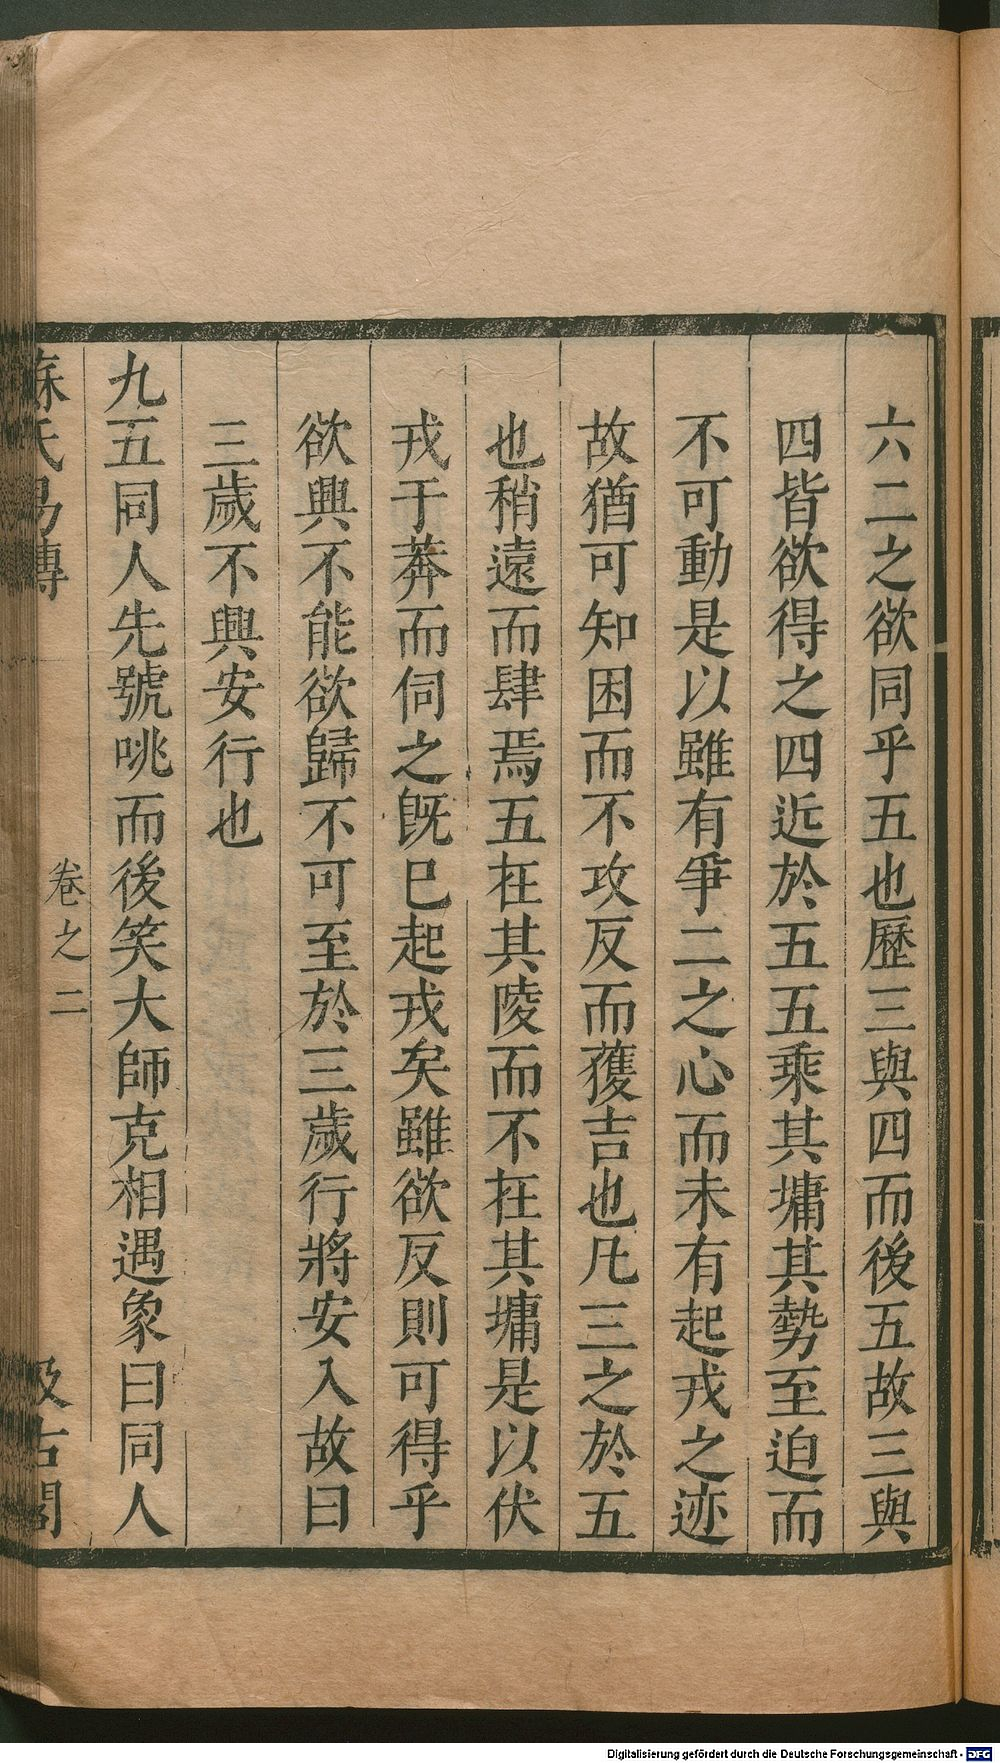 六二之欲同乎五也歷三與四而後五故三與
四皆欲得之四近於五五乘其墉其勢至迫而
不可動是以雖有爭二之心而未有起戎之迹
故猶可知困而不攻反而獲吉也凡三之於五
也稍遠而肆焉五在其陵而不在其墉是以伏
戎于莽而伺之旣已起戎矣雖欲反則可得乎
欲興不能欲歸不可至於三歲行將安入故曰
三歲不興安行也
九五同人先號咷而後笑大師克相遇象曰同人
蘇氏易傳
卷之二
汲古閣
Digitalisierung gefördert durch die Deutsche Forschungsgemeinschaft - DFG